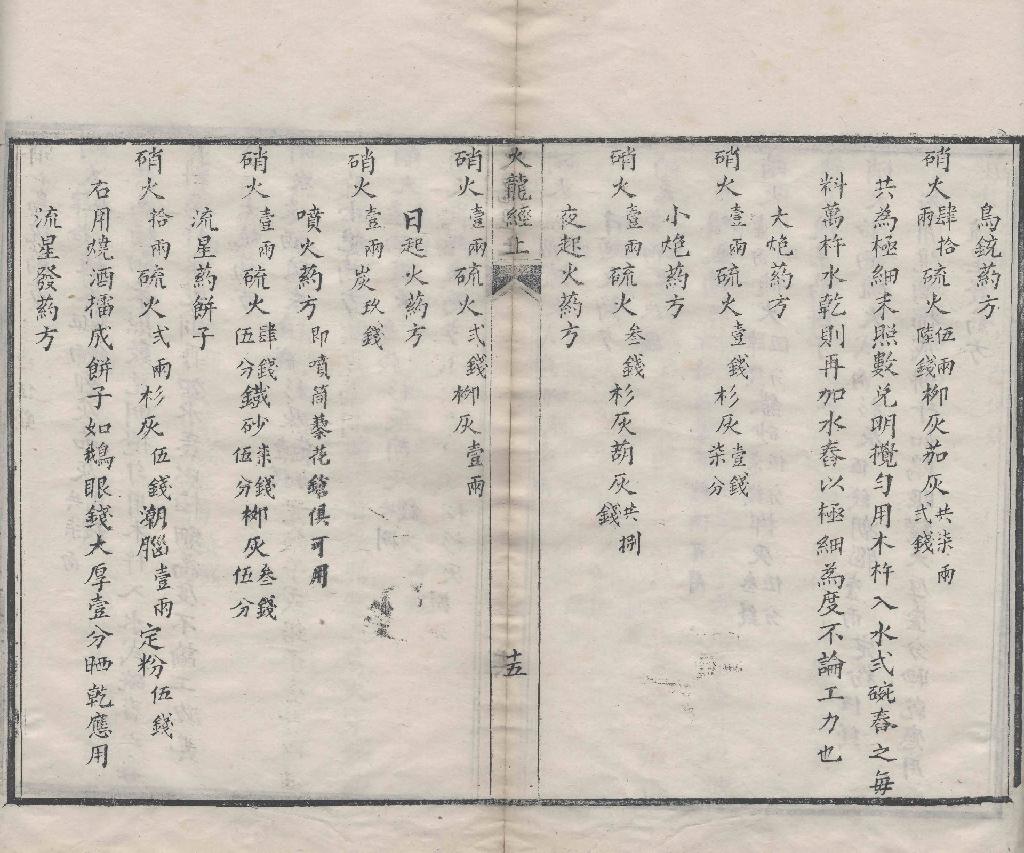 鳥銃葯方
硝火肆拾兩硫火伍兩陸錢柳灰茄灰共柒兩弍錢
共為極細末照數兌明攪勻用木杵入水弍碗舂之每
料萬杵水乾則再加水舂以極細為度不論工力也
大炮葯方
硝火壹兩硫火壹錢杉灰壹錢柒分
小炮葯方
硝火壹兩硫火叁錢杉灰葫灰共捌錢
夜起火葯方
火龍經上
十五
硝火壹兩硫火弍錢柳灰壹兩
日起火葯方
硝火壹兩炭玖錢
噴火葯方即噴筒藜花俱可用
硝火壹兩硫火肆錢伍分鐵砂柒錢伍分柳灰叁錢伍分
流星葯餅子
硝火拾兩硫火弍兩杉灰伍錢潮腦壹兩定粉伍錢
右用燒酒擂成餅子如鵝眼錢大厚壹分晒乾應用
流星發葯方